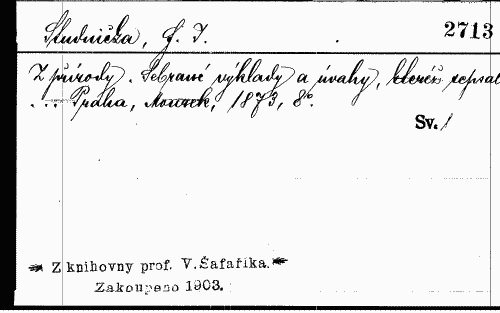 Studnička, F. I. 2713
Z přírody. Sebrané výklady a úvahy, kteréž sepsal
... Praha, Mourek, 1873, 8°.
Sv. 1
Z knihovny prof. V. Šafaříka.
Zakoupeno 1903.